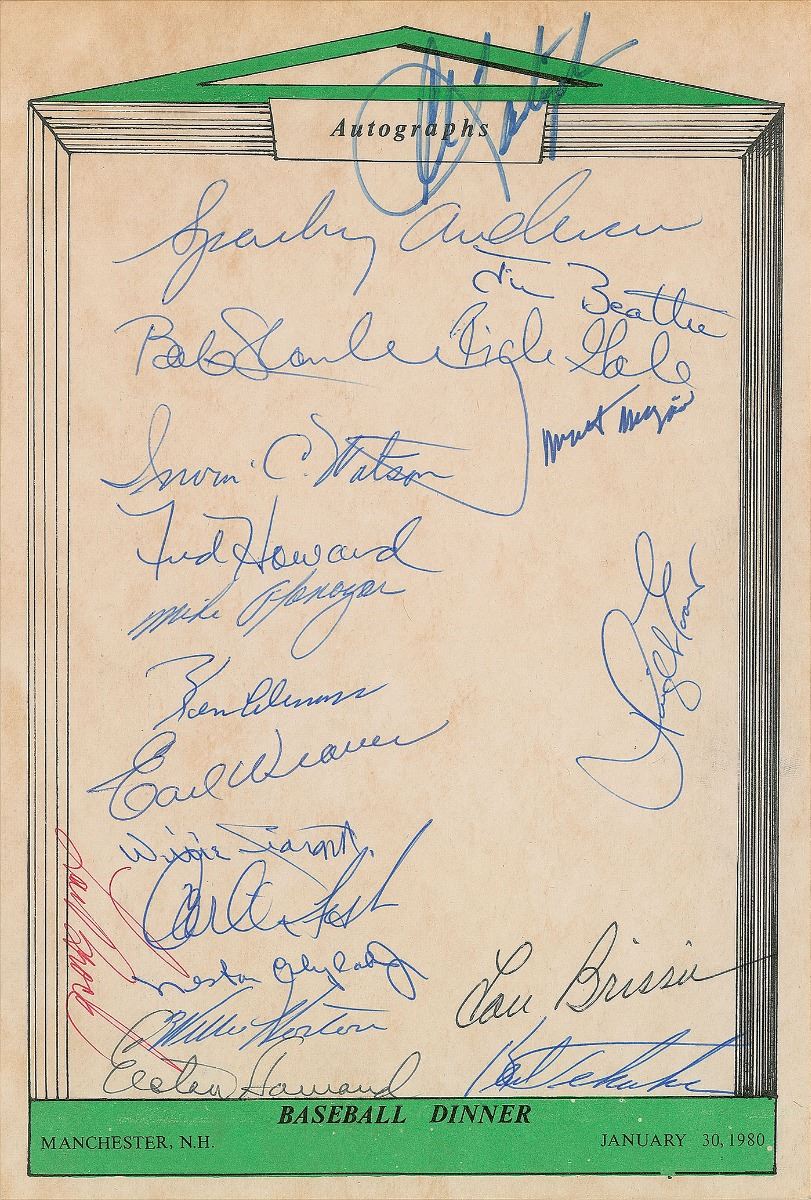 Autographs
Sparky Anderson
Jim Beattie
Bob Stanley
Rich Gale
Irwin C. Watson
Fred Howard
Mike Flanagan
Ken Clemens
Earl Weaver
Willie Stargell
Carlton Fisk
Willie Horton
Lou Brissie
Elston Howard
BASEBALL DINNER
MANCHESTER, N.H.
JANUARY 30, 1980